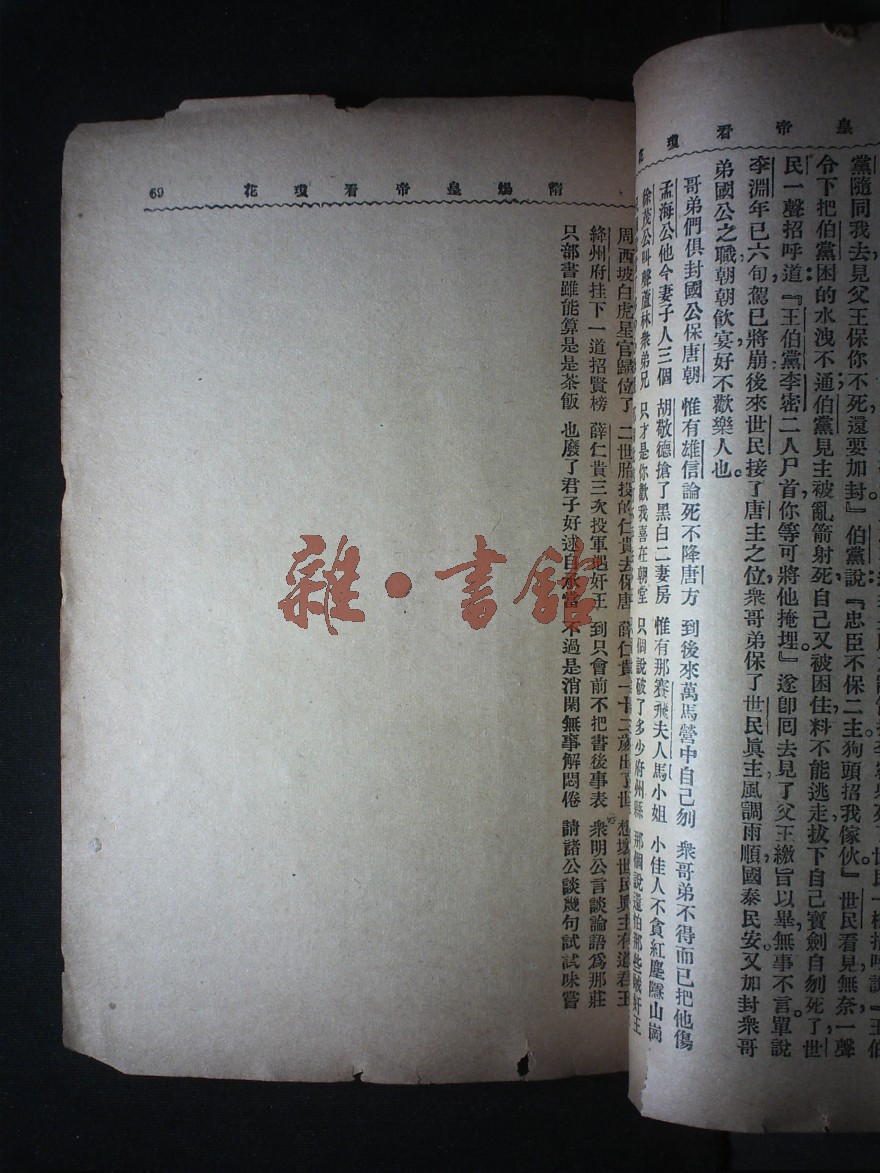 皇帝看瓊
黨隨同我去見父王保你不死還要加封』伯黨說『忠臣不保二主狗頭招我傢伙。』世民看見無奈一聲
令下把伯黨困的水洩不通伯黨見主被亂箭射死自己又被困住料不能逃走拔下自己寶劍自刎死了世
民一聲招呼道『王伯黨李密二人尸首你等可將他掩埋』遂卽回去見了父王繳旨以畢無事不言單說
李淵年已六旬駕已將崩後來世民接了唐主之位衆哥弟保了世民眞主風調雨順國泰民安。又加封衆哥
弟國公之職朝朝飲宴好不歡樂人也。
哥弟們俱封國公保唐朝　惟有雄信論死不降唐方　到後來萬馬營中自己刎　衆哥弟不得而已把他傷
孟海公他今妻子人三個　胡敬德搶了黑白二妻房　惟有那賽飛夫人馬小姐　小佳人不貪紅塵隱山崗
徐茂公叫聲蘆林衆弟兄　只才是你歡我喜在朝堂　只個說破了多少府州縣　那個說還怕那些賊奸王
隋煬皇帝看瓊花　69
周西坡白虎星官歸位了　二世胎投的仁貴去保唐　薛仁貴一十二歲出了世　想壞世民興主有道君王
絳州府挂下一道招賢榜　薛仁貴三次投軍遇奸王　到只會前不把書後事表　衆明公言談論語爲那莊
只部書雖能算是是茶飯　也廢了君子好逑自永當　不過是消閑無事解悶倦　請諸公談幾句試試味嘗
雜·書館